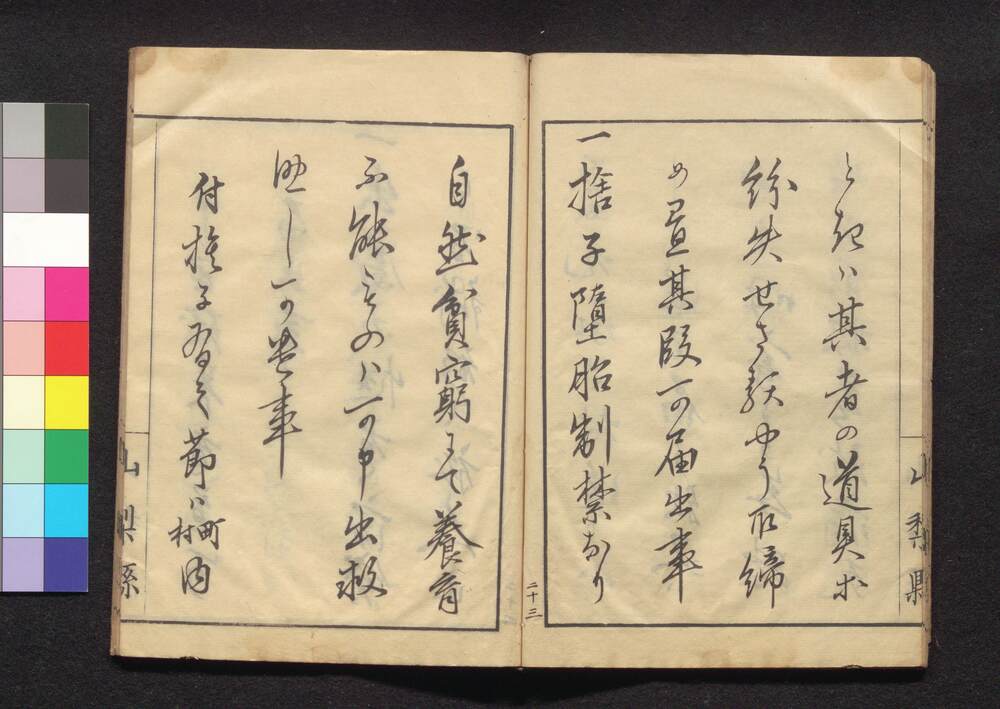 ときハ其者の道具等
紛失せさる様ニ取締
め置其段可届出事
一捨子堕胎制禁なり
自然貧窮にて養育
不能ものハ可申出救
助し可遣事
付捨子有之節ハ町村内
二十三
山梨縣
山梨縣